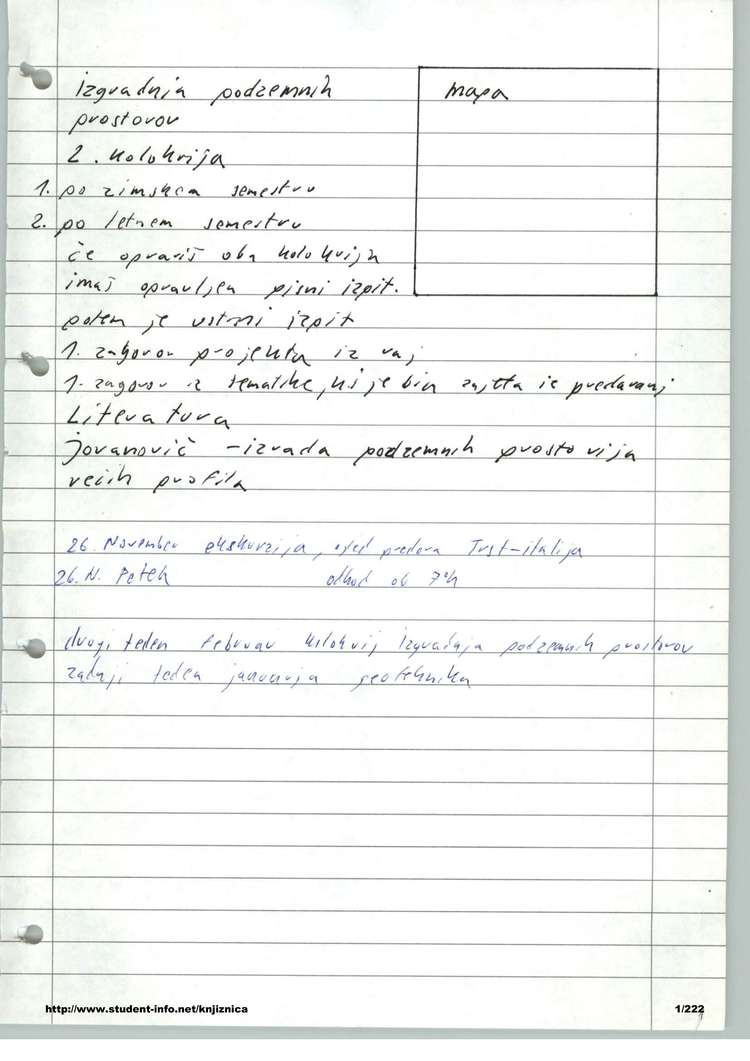 izgradnja podzemnih
prostorov
mapa
2. kolokvija
1. po zimskem semestru
2. po letnem semestru
če opraviš oba kolokvija
imaš opravljen pisni izpit.
potem je ustni izpit
1. zagovor projekta iz vaj
1. zagovor iz tematike, ki je bila zajeta iz predavanj
Literatura
Jovanovič - izrada podzemnih prostorija
večih profila
26. November ekskurzija, ogled predora Trst-italija
26. N. Petek odhod ob 7h
drugi teden februar kolokvij Izgradnja podzemnih prostorov
zadnji teden januarja geotehnika
http://www.student-info.net/knjiznica
1/222